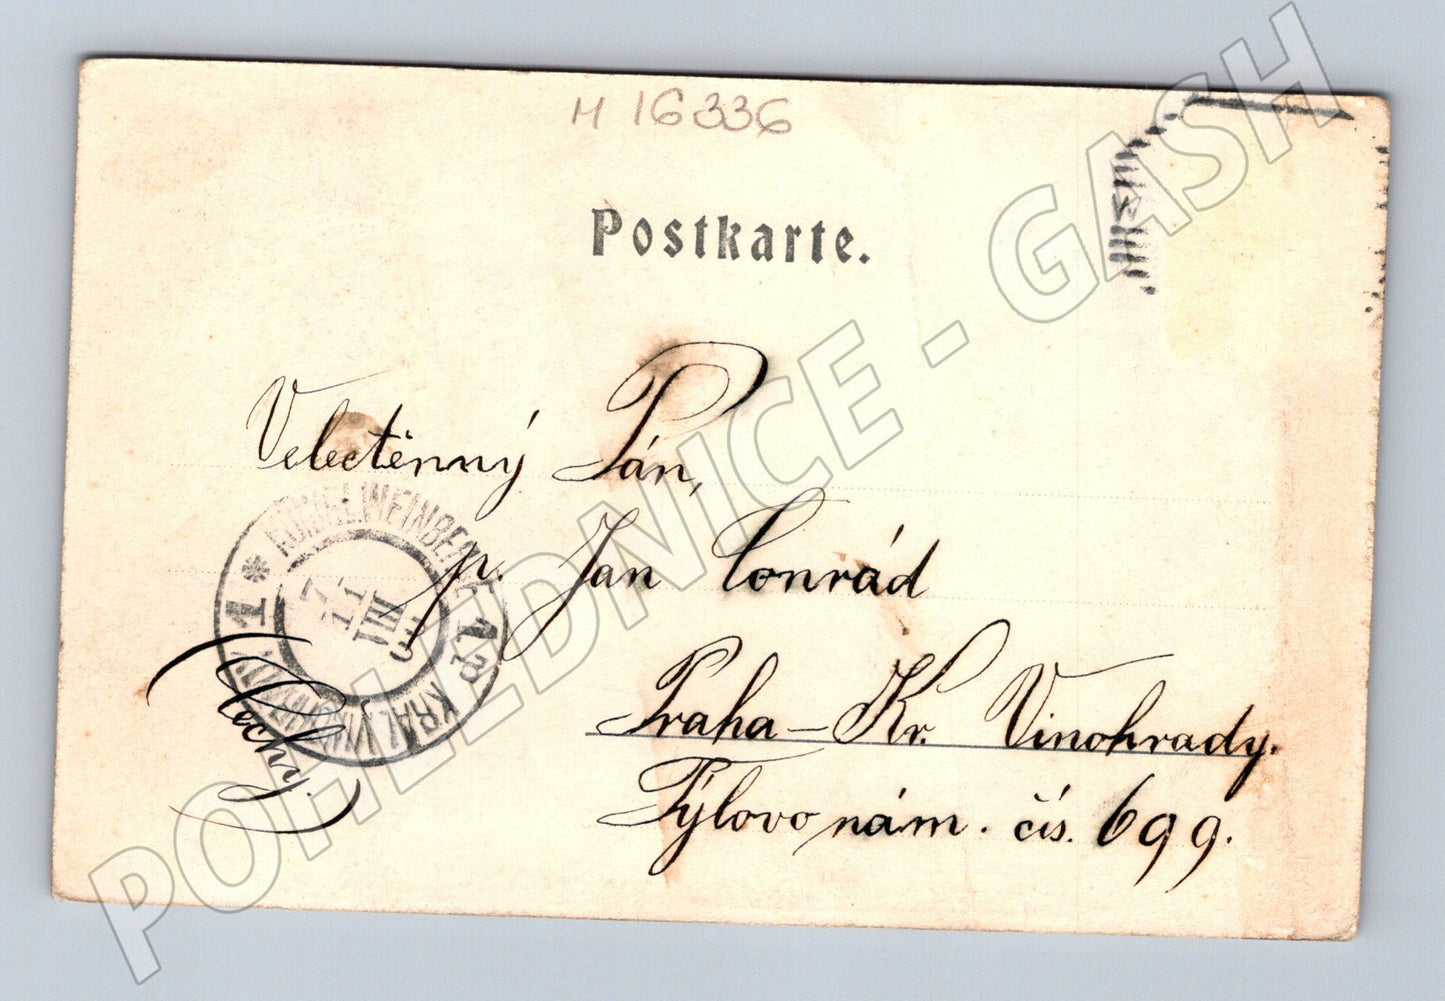 M 16336
Postkarte.
Velectěnný Pán,
p. Jan Conrád
Praha – Kr. Vinohrady.
Týlovo nám. čís. 699.
Čechy.
KÖNIGL. WEINBERGE 1
KRÁL. VINOHRADY 1
7
11
VIII
03
POHLEDNICE - GASH